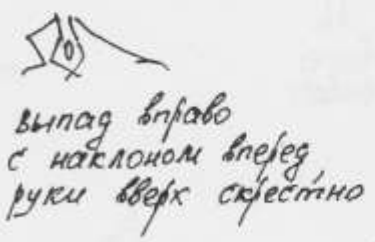 выпад вправо
с наклоном вперед
руки вверх скрестно